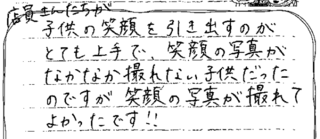 店員さんたちが
子供の笑顔を引き出すのが
とても上手で、笑顔の写真が
なかなか撮れない子供だった
のですが笑顔の写真が撮れて
よかったです!!